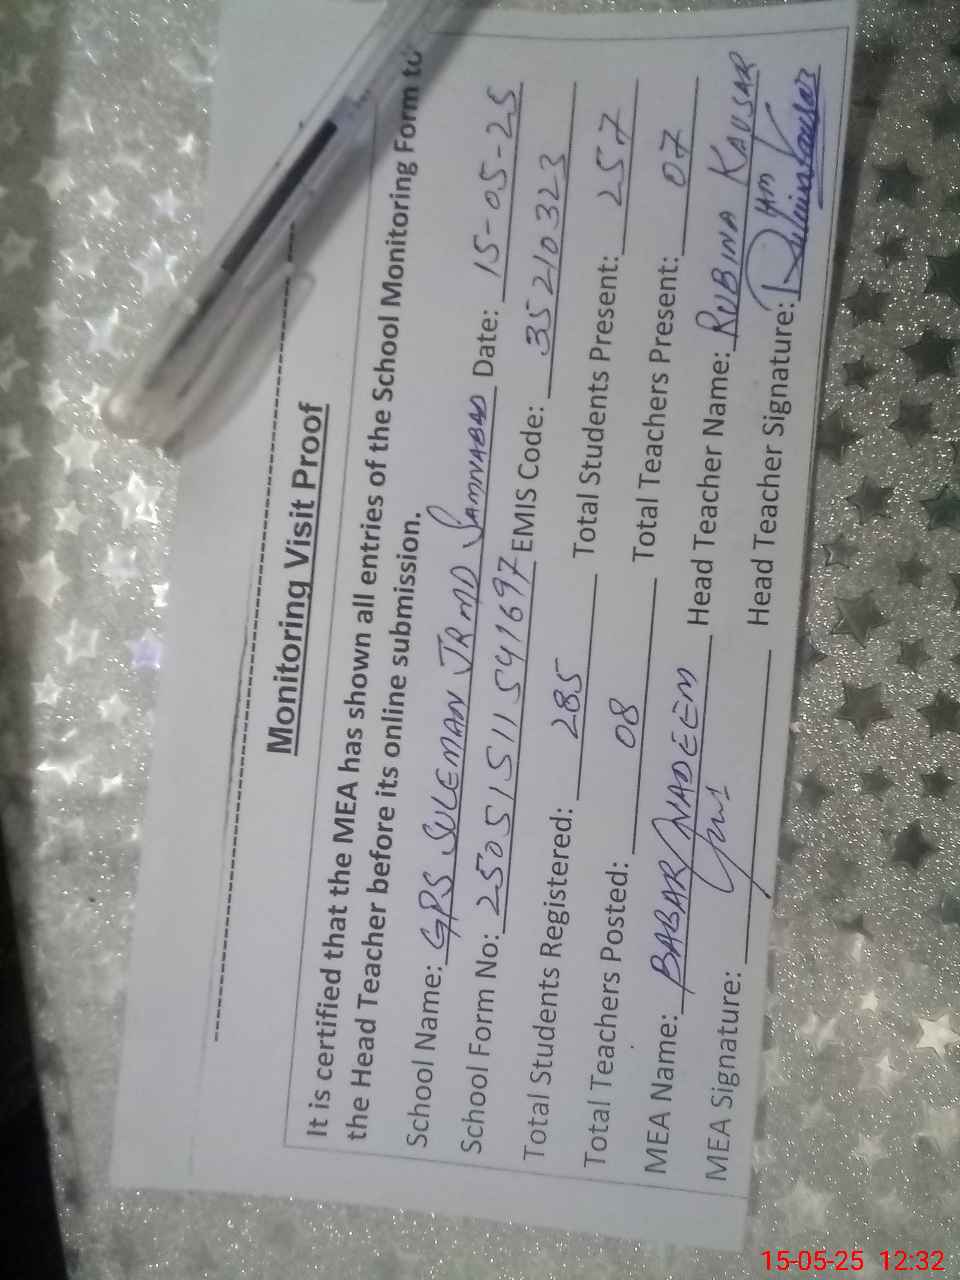 Monitoring Visit Proof
It is certified that the MEA has shown all entries of the School Monitoring Form to
the Head Teacher before its online submission.
School Name: GPS SULEMAN JRMD SAMNABAD Date: 15-05-25
School Form No: 2505151159 1697 EMIS Code: 35210323
Total Students Registered: 285 Total Students Present: 257
Total Teachers Posted: 08 Total Teachers Present: 07
MEA Name: BABAR NADEEM Head Teacher Name: RUBINA KAUSAR
MEA Signature: Head Teacher Signature: Rubina Kausar
15-05-25 12:32